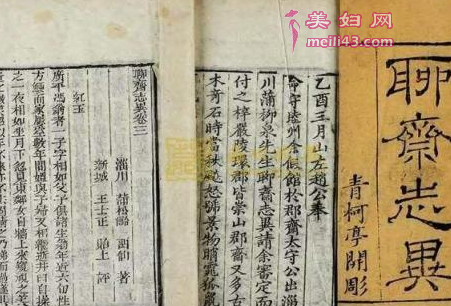 美妇网
meili43.com
聊齋志異
青柯亭開彫
乙酉三月山左趙公奉
命守睦州余假館於郡齋太守公出淄
川蒲柳泉先生聊齋志異請余審定而
付之梓嚴陵環郡皆崇山郡齋又多古
木奇石時當秋飈怒號景物睄窱狐
聊齋志異卷三
淄川 蒲松齡 留仙 著
新城 王士正 貽上 評
紅玉
廣平馮翁者一子字相如父子俱諸生翁年近六旬性
方鯁而家屢空數年間媼與子婦又相繼逝井臼自操
之一夜相如坐月下忽見東鄰女自牆上來窺視之美